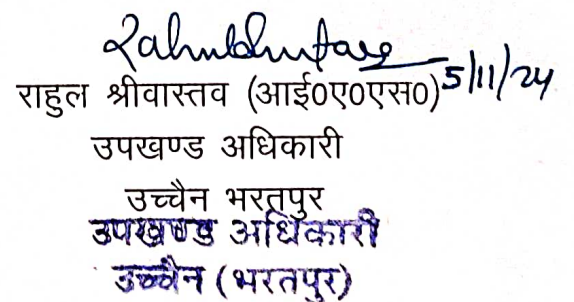 राहुल श्रीवास्तव (आई०ए०एस०) 5/11/24
उपखण्ड अधिकारी
उच्चैन भरतपुर
उपखण्ड अधिकारी
उच्चैन (भरतपुर)